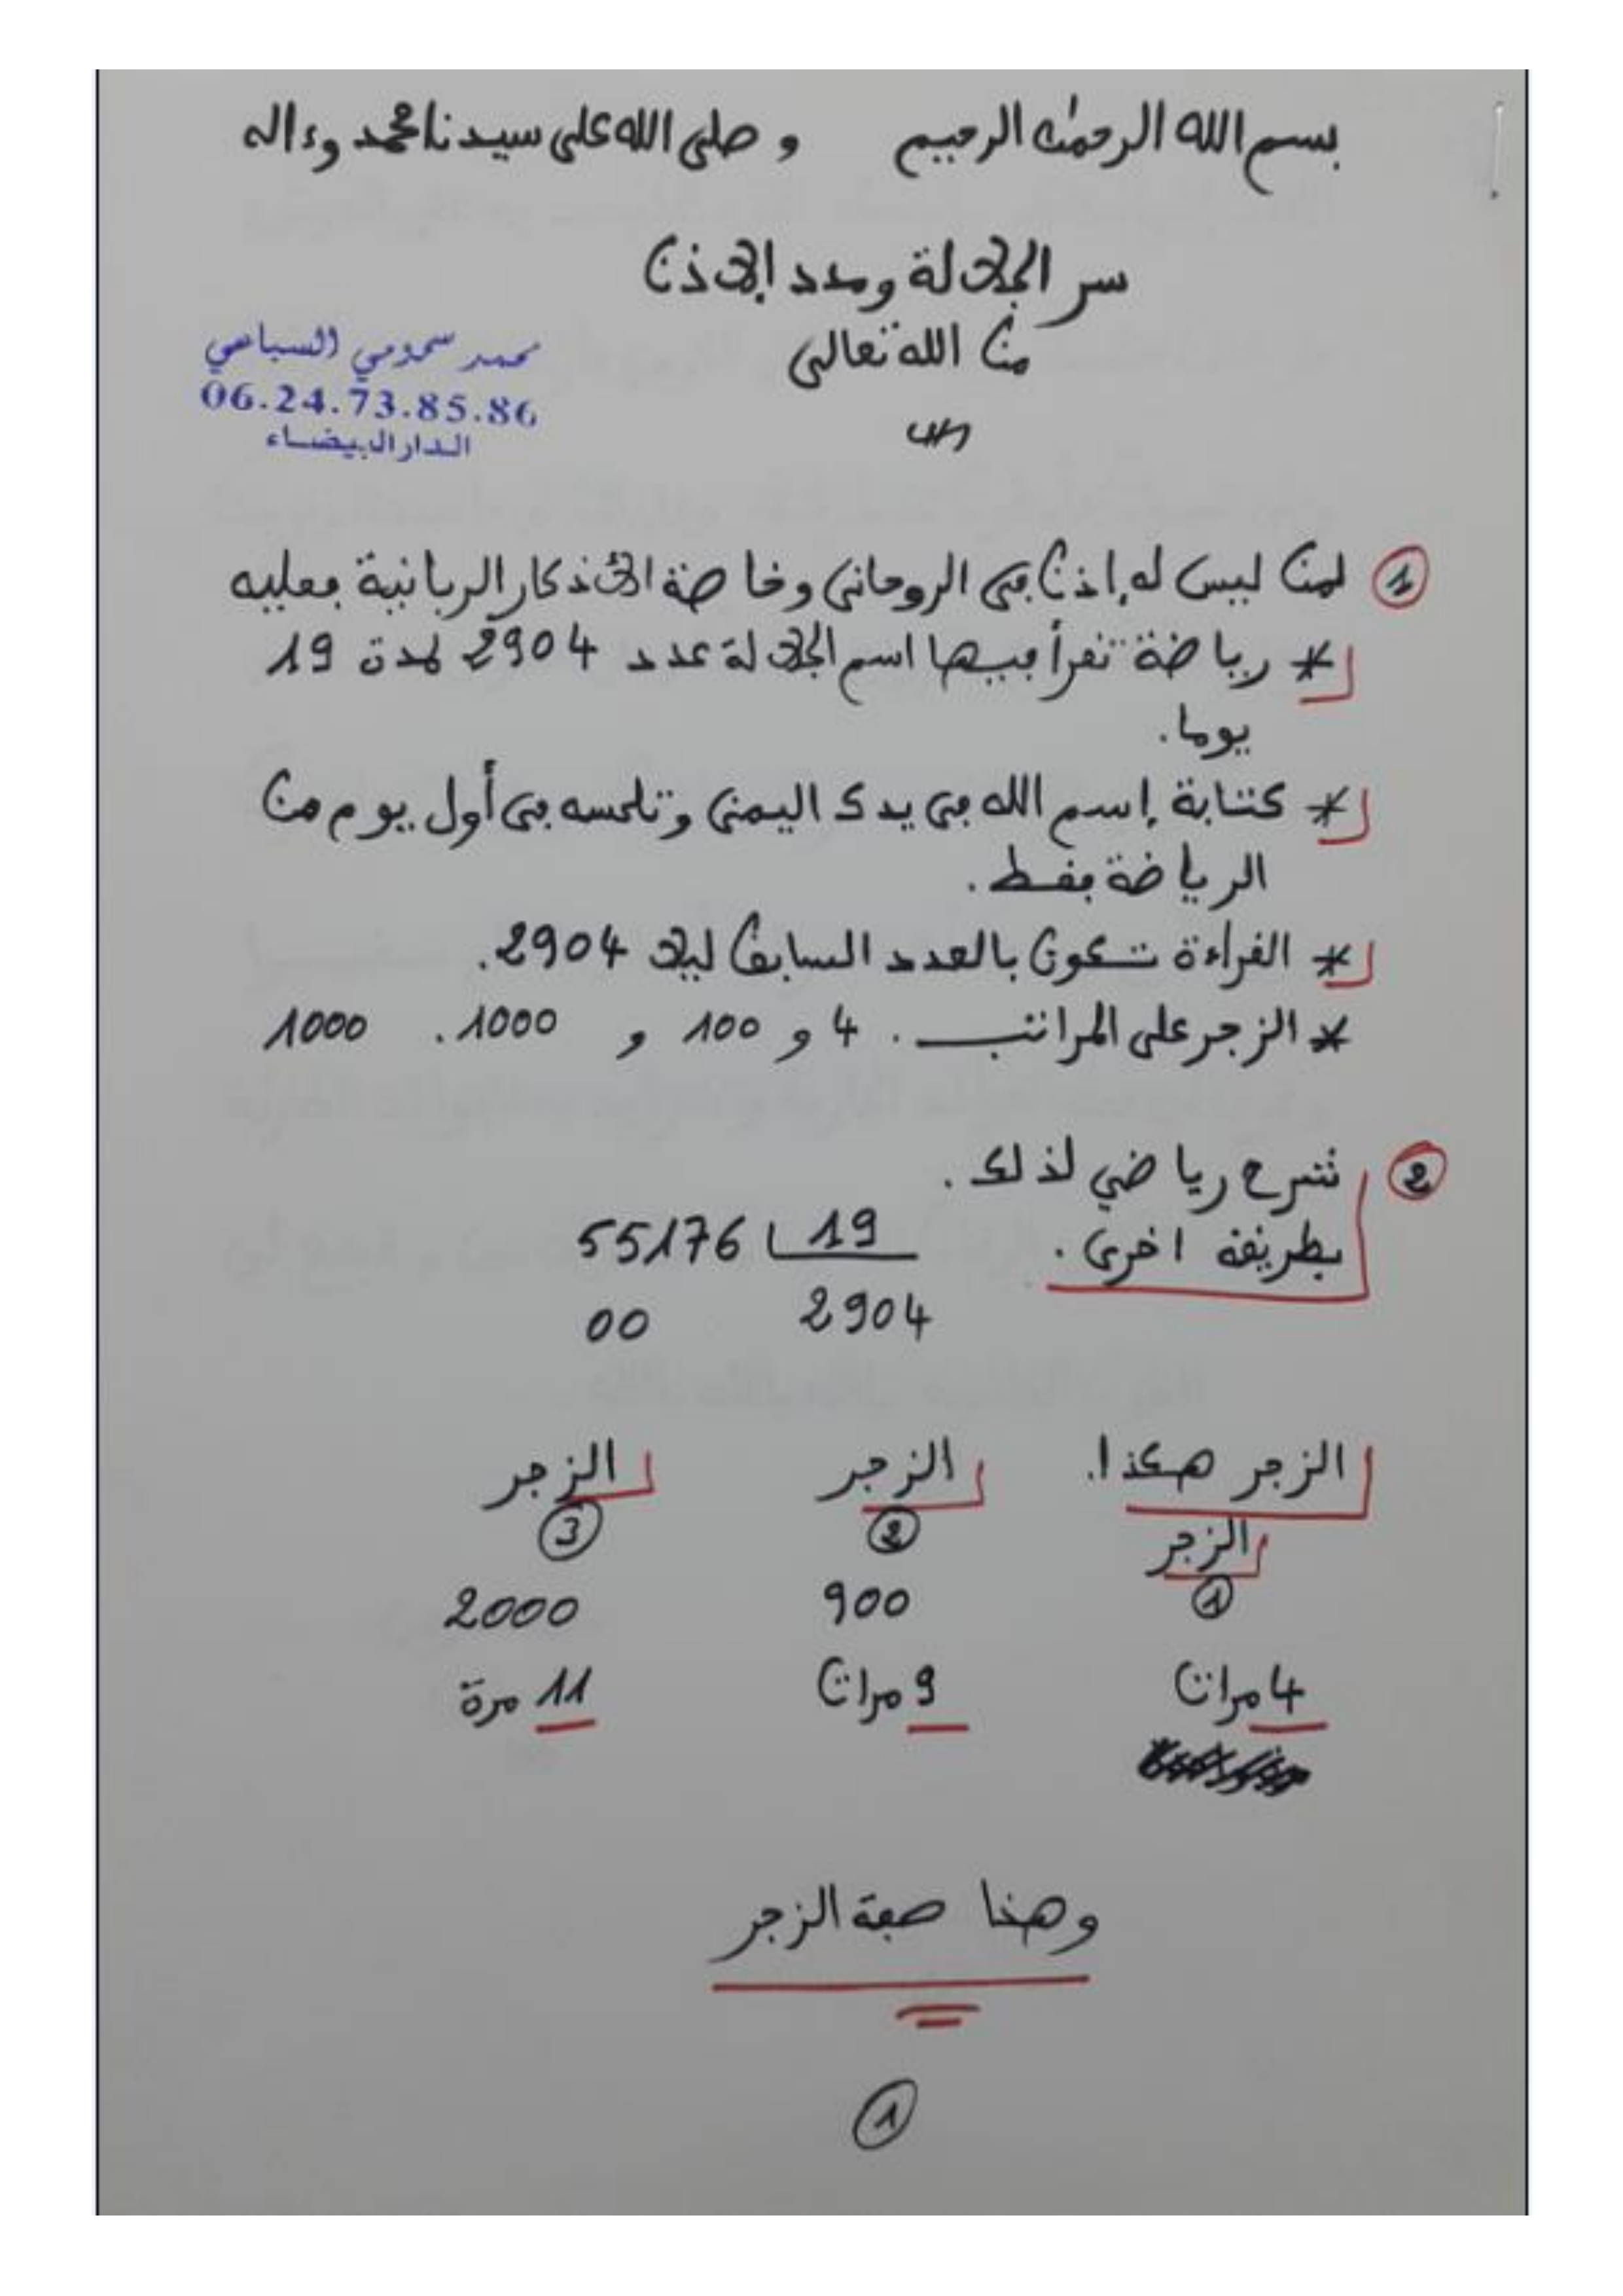 بسم الله الرحمٰن الرحيم و صلى الله على سيدنا محمد وءاله
سر الجلالة ومدد الإذن
من الله تعالى
محمد سحومي السباعي
06.24.73.85.86
الدار البيضاء
1 لمن ليس له إذن في الروحاني وخاصة الأذكار الربانية فعليه
* رياضة تقرأ فيها اسم الجلالة عدد 2904 لمدة 19
يوما.
* كتابة إسم الله في يدك اليمنى وتلحسه في أول يوم من
الرياضة فقط.
* القراءة تكون بالعدد السابق ليلا 2904.
* الزجر على المراتب. 4 و 100 و 1000. 1000
2 شرح رياضي لذلك.
بطريقة اخرى.
55176 19
00 2904
الزجر هكذا.
الزجر الزجر الزجر
1 2 3
900 2000
4 مرات 9 مرات 11 مرة
وهذا صفة الزجر
1